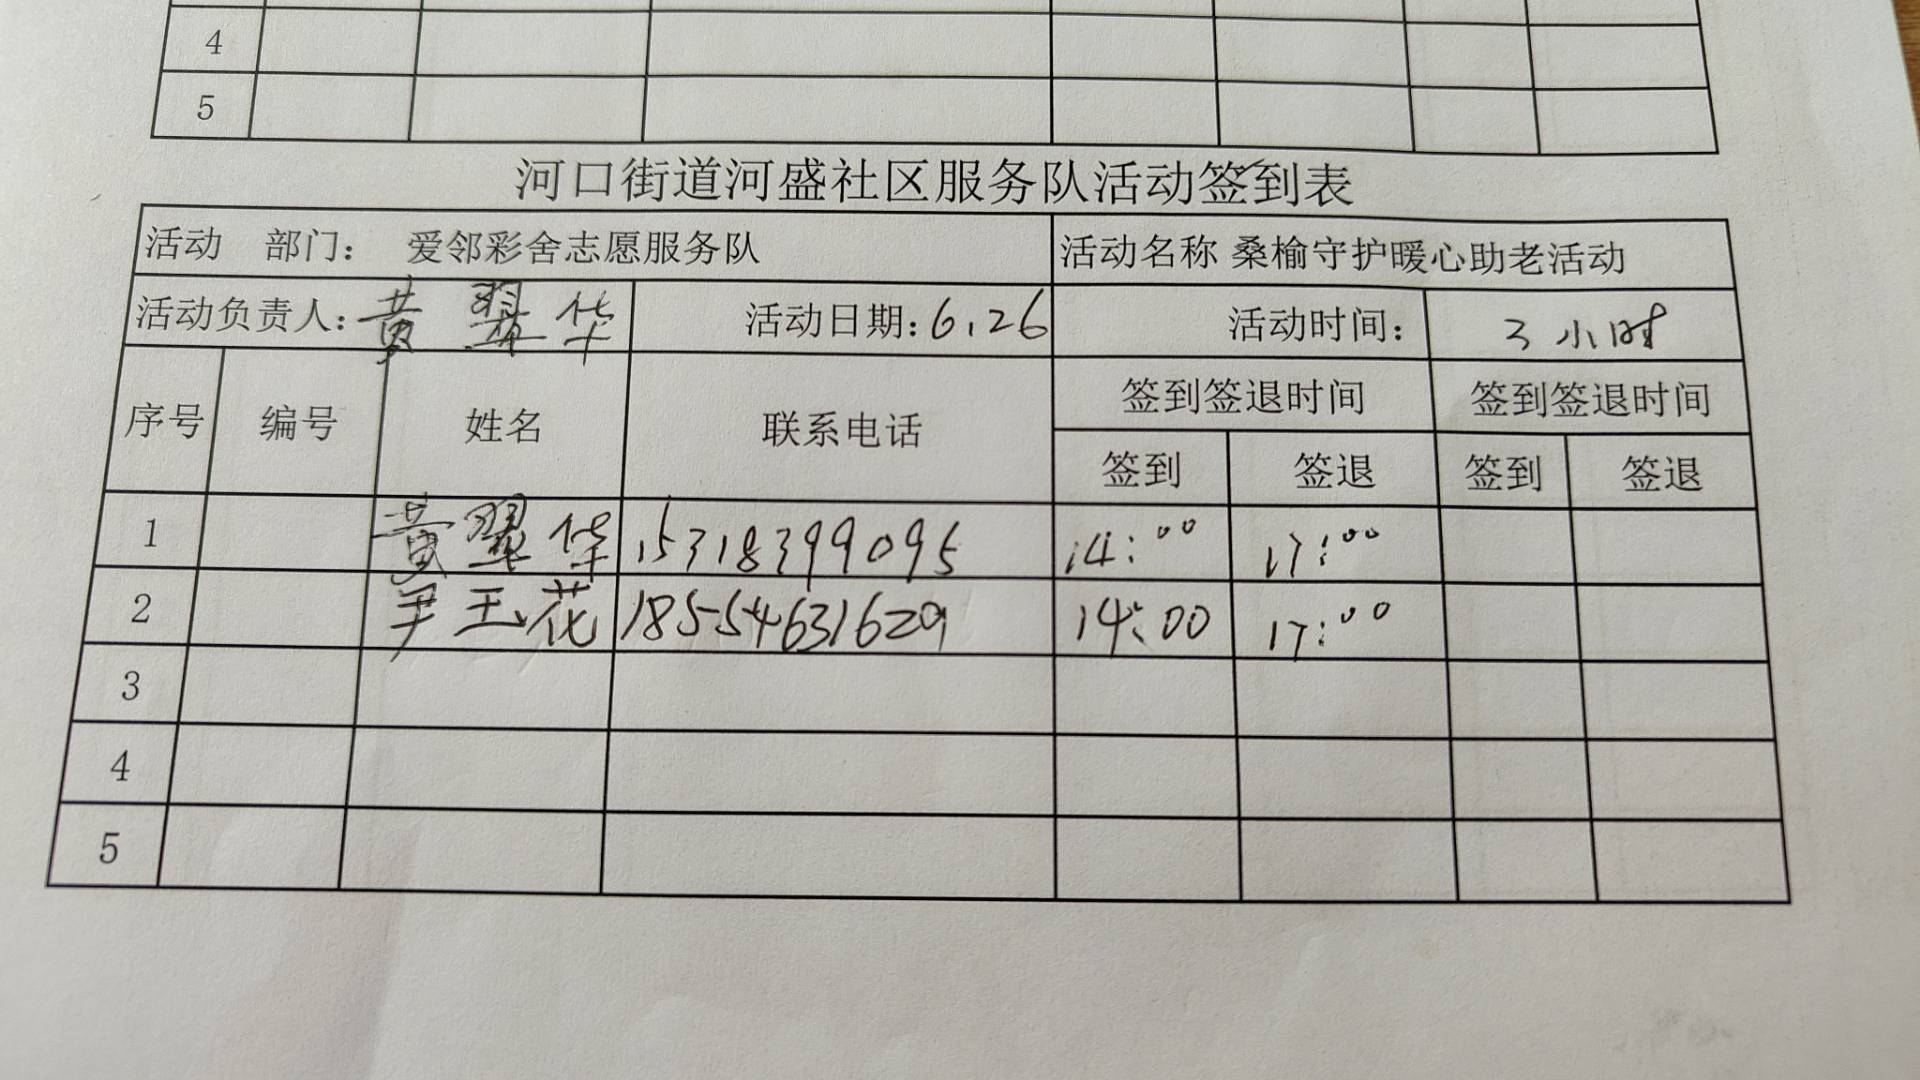 4
5
河口街道河盛社区服务队活动签到表
活动 部门： 爱邻彩舍志愿服务队 活动名称 桑榆守护暖心助老活动
活动负责人：黄翠华 活动日期：6.26 活动时间： 3小时
序号 编号 姓名 联系电话 签到签退时间 签到签退时间
签到 签退 签到 签退
1 黄翠华 15318399095 14:00 17:00
2 尹玉花 18554631629 14:00 17:00
3
4
5